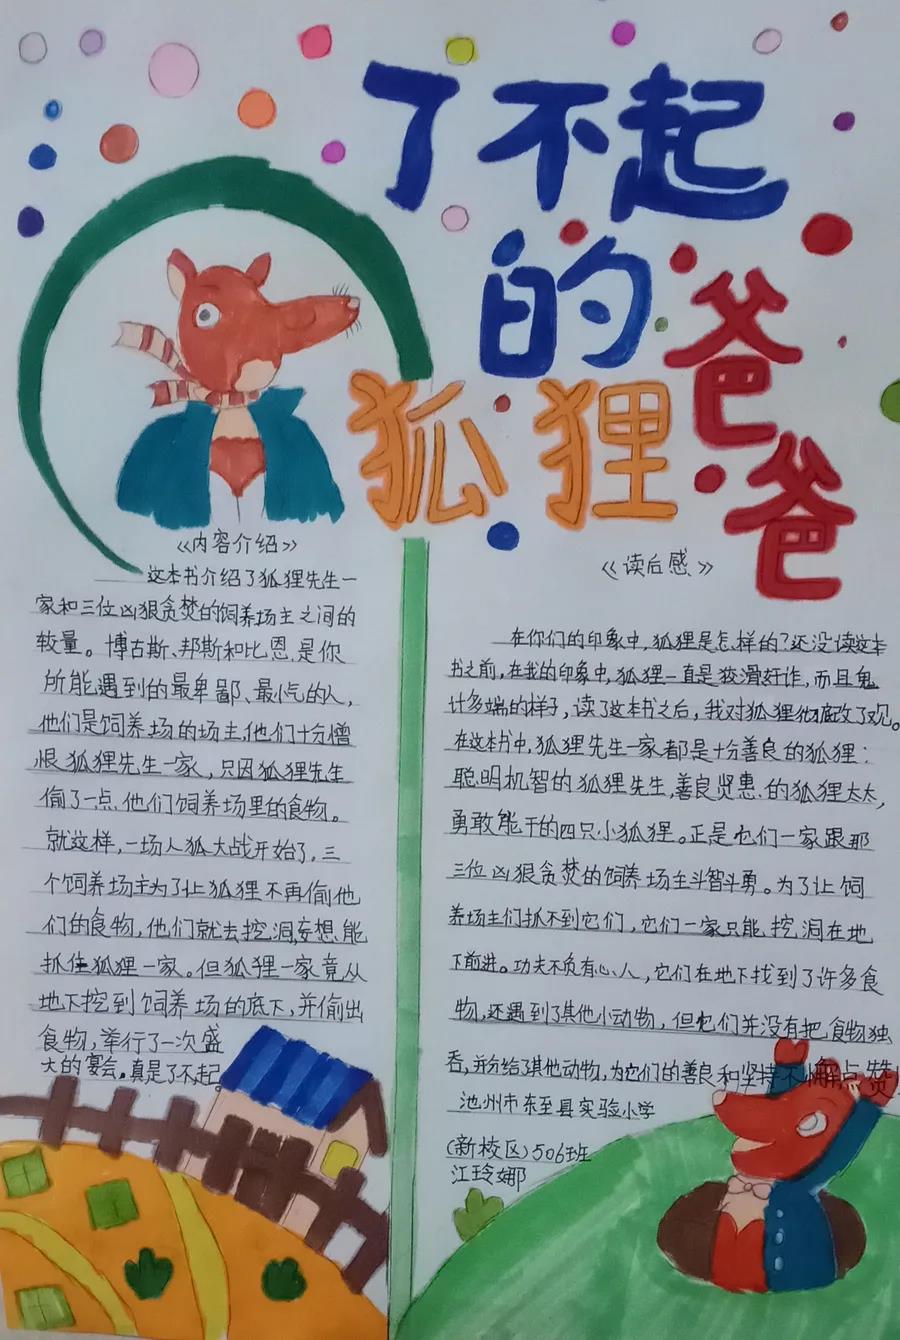 了不起
的
狐狸
爸
爸
《内容介绍》
——这本书介绍了狐狸先生一
家和三位凶狠贪婪的饲养场主之间的
较量。博古斯、邦斯和比恩.是你
所能遇到的最卑鄙、最小气的人,
他们是饲养场的场主,他们十分憎
恨狐狸先生一家,只因狐狸先生
偷了一点他们饲养场里的食物。
就这样,一场人狐大战开始了,三
个饲养场主为了让狐狸不再偷他
们的食物,他们就去挖洞,妄想能
抓住狐狸一家。但狐狸一家竟从
地下挖到饲养场的底下,并偷出
食物,举行了一次盛
大的宴会。真是了不起。
《读后感》
在你们的印象中,狐狸是怎样的?还没读这本
书之前,在我的印象中,狐狸一直是狡滑奸诈,而且鬼
计多端的样子,读了这本书之后,我对狐狸彻底改了观。
在这本书中,狐狸先生一家都是十分善良的狐狸:
聪明机智的狐狸先生,善良贤惠的狐狸太太,
勇敢能干的四只小狐狸。正是它们一家跟那
三位凶狠贪婪的饲养场主斗智斗勇。为了让饲
养场主们抓不到它们,它们一家只能挖洞在地
下前进。功夫不负有心人,它们在地下找到了许多食
物,还遇到了其他小动物,但它们并没有把食物独
吞,并分给了其他动物,为它们的善良和坚持不懈点赞!
池州市东至县实验小学
(新校区)506班
江玲娜